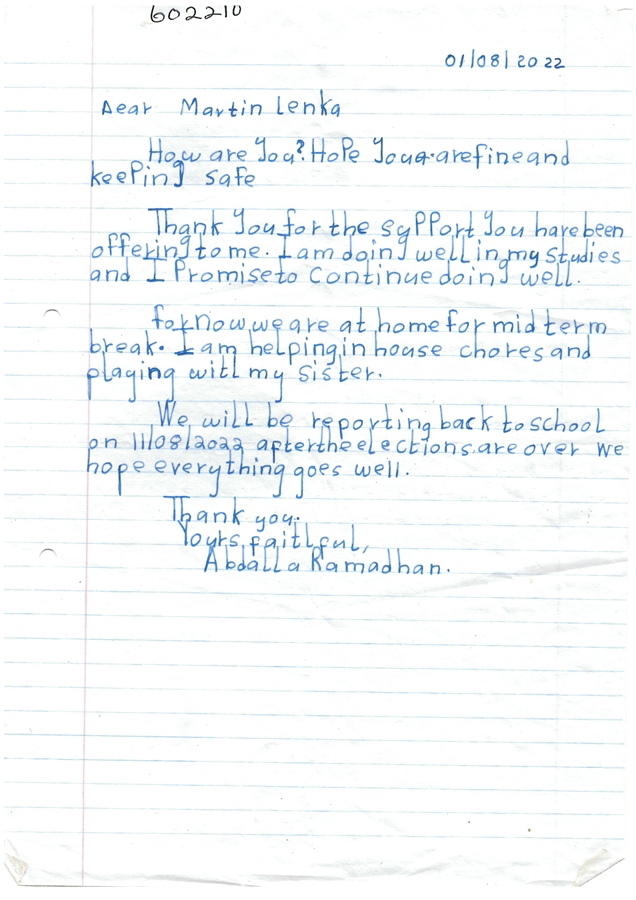 602210
01/08/2022
Dear Martin Lenka
How are you? Hope you are fine and
keeping safe
Thank you for the support you have been
offering to me. I am doing well in my studies
and I Promise to continue doing well.
for now, we are at home for mid term
break. I am helping in house chores and
playing with my sister.
We will be reporting back to school
on 11/08/2022 after the elections are over we
hope everything goes well.
Thank you.
Yours faithful,
Abdalla Ramadhan.